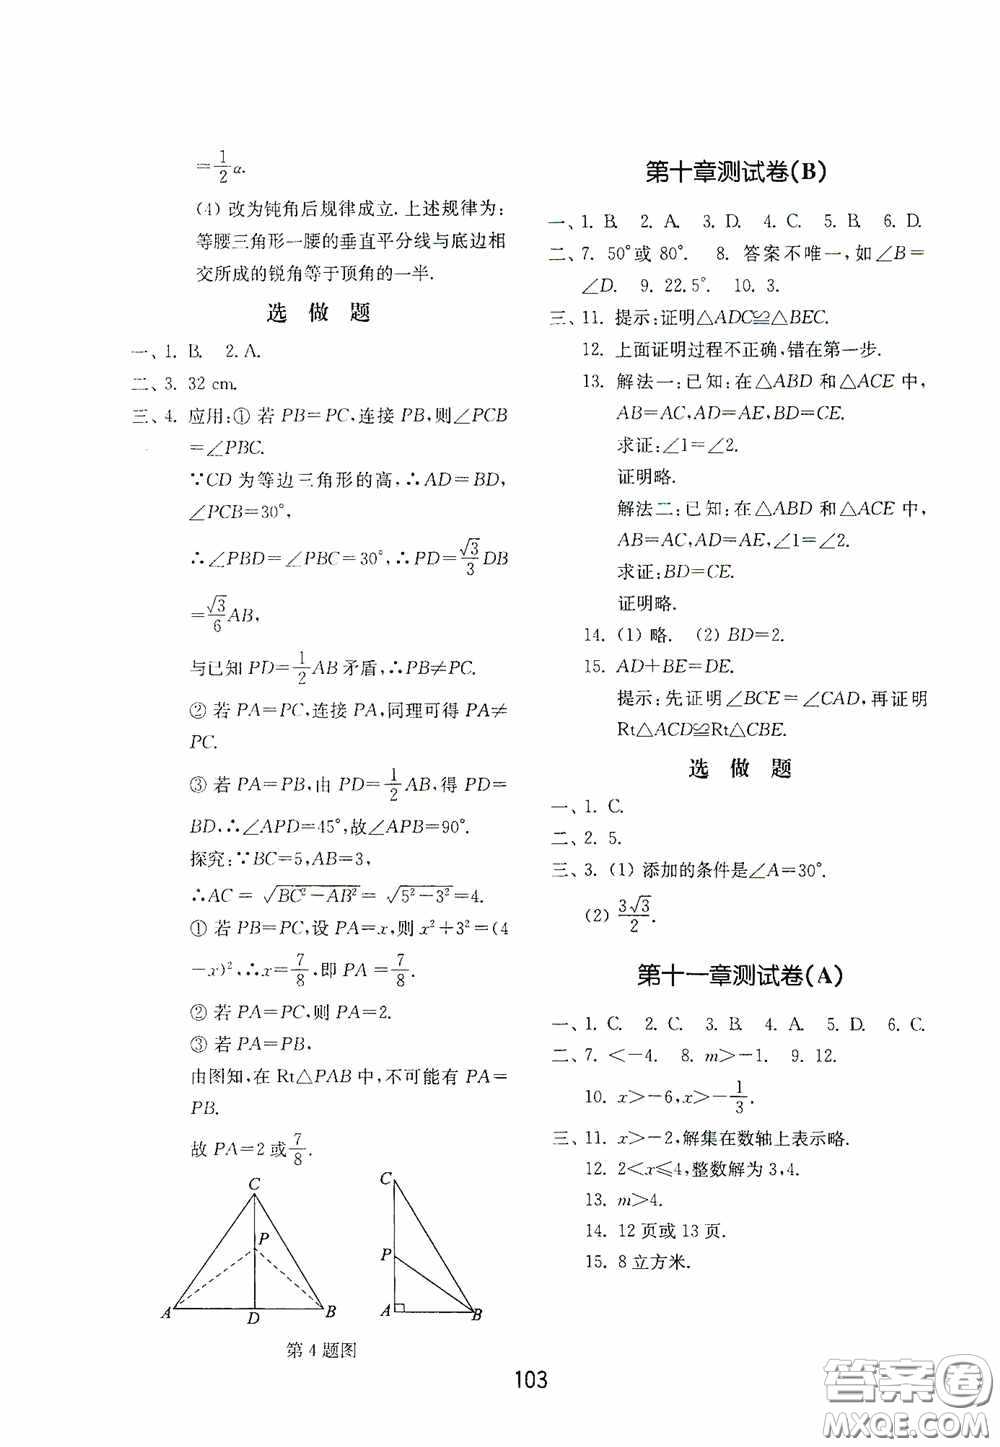 =1/2 α.
(4) 改为钝角后规律成立. 上述规律为:
等腰三角形一腰的垂直平分线与底边相
交所成的锐角等于顶角的一半.
选 做 题
一、1. B. 2. A.
二、3. 32 cm.
三、4. 应用:① 若 PB=PC,连接 PB,则∠PCB
=∠PBC.
∵CD 为等边三角形的高,∴AD=BD,
∠PCB=30°,
∴∠PBD=∠PBC=30°,∴PD=√3/3 DB
=√3/6 AB,
与已知 PD=1/2 AB 矛盾,∴PB≠PC.
② 若 PA=PC,连接 PA,同理可得 PA≠
PC.
③ 若 PA=PB,由 PD=1/2 AB,得 PD=
BD,∴∠APD=45°,故∠APB=90°.
探究:∵BC=5,AB=3,
∴AC=√(BC²-AB²)=√(5²-3²)=4.
① 若 PB=PC,设 PA=x,则 x²+3²=(4
-x)²,∴x=7/8,即 PA=7/8.
② 若 PA=PC,则 PA=2.
③ 若 PA=PB,
由图知,在 Rt△PAB 中,不可能有 PA=
PB.
故 PA=2 或 7/8.
C
P
A D B
C
P
A B
第 4 题图
第十章测试卷(B)
一、1. B. 2. A. 3. D. 4. C. 5. B. 6. D.
二、7. 50°或 80°. 8. 答案不唯一,如∠B=
∠D. 9. 22.5°. 10. 3.
三、11. 提示:证明△ADC≌△BEC.
12. 上面证明过程不正确,错在第一步.
13. 解法一:已知:在△ABD 和△ACE 中,
AB=AC,AD=AE,BD=CE.
求证:∠1=∠2.
证明略.
解法二:已知:在△ABD 和△ACE 中,
AB=AC,AD=AE,∠1=∠2.
求证:BD=CE.
证明略.
14. (1) 略. (2) BD=2.
15. AD+BE=DE.
提示:先证明∠BCE=∠CAD,再证明
Rt△ACD≌Rt△CBE.
选 做 题
一、1. C.
二、2. 5.
三、3. (1) 添加的条件是∠A=30°.
(2) 3√3/2.
第十一章测试卷(A)
一、1. C. 2. C. 3. B. 4. A. 5. D. 6. C.
二、7. <-4. 8. m>-1. 9. 12.
10. x>-6,x>-1/3.
三、11. x>-2,解集在数轴上表示略.
12. 2<x≤4,整数解为 3,4.
13. m>4.
14. 12 页或 13 页.
15. 8 立方米.
103
答案卷
MXQE.COM